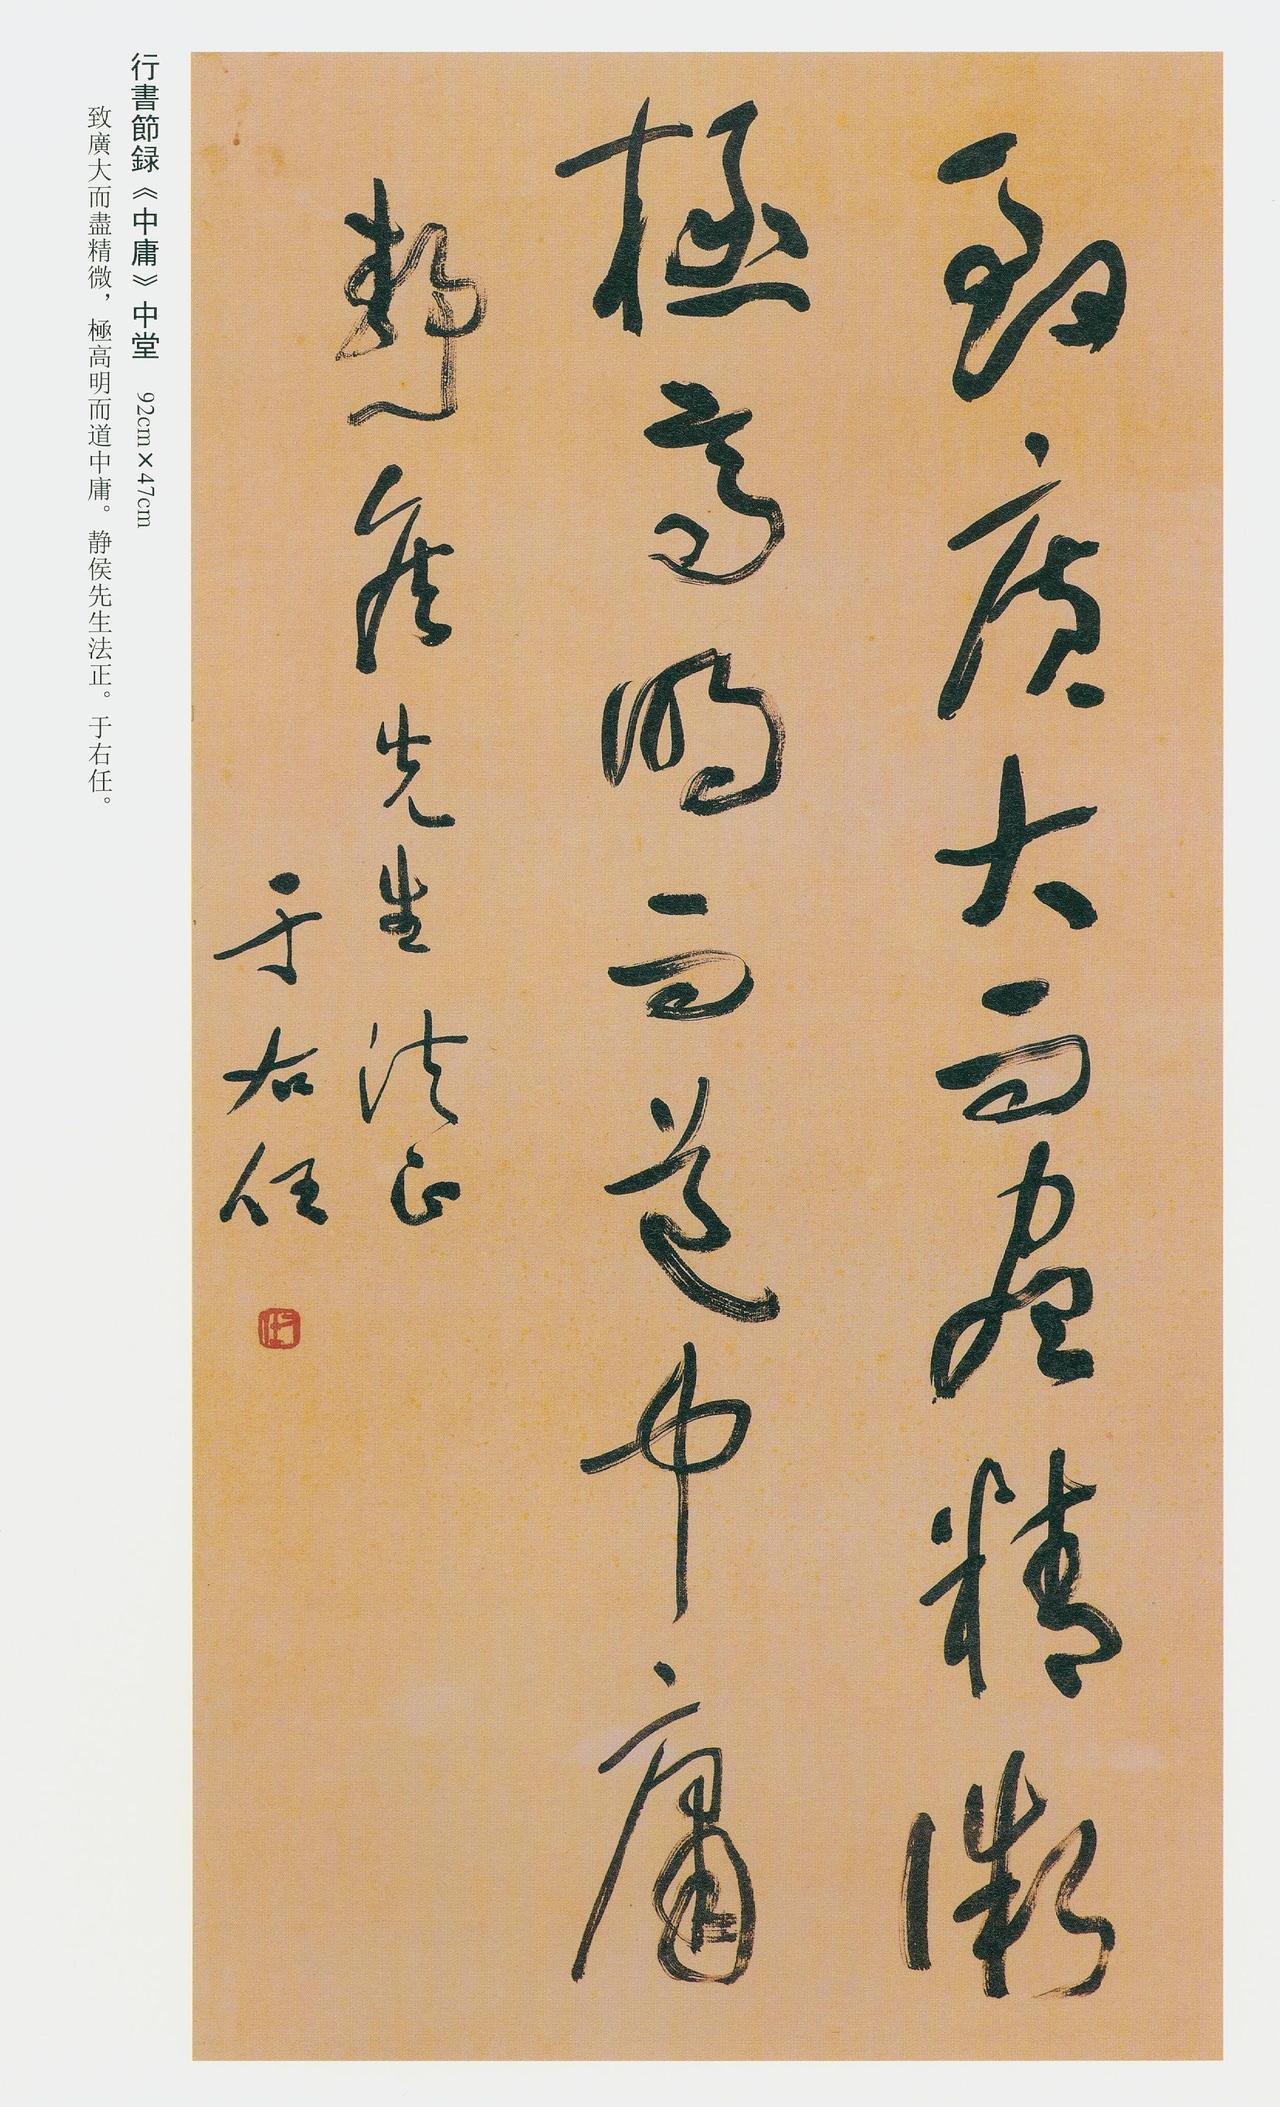 致廣大而盡精微
極高明而道中庸
静侯先生法正
于右任
行書節録《中庸》中堂　92cm×47cm
致廣大而盡精微，極高明而道中庸。静侯先生法正。于右任。